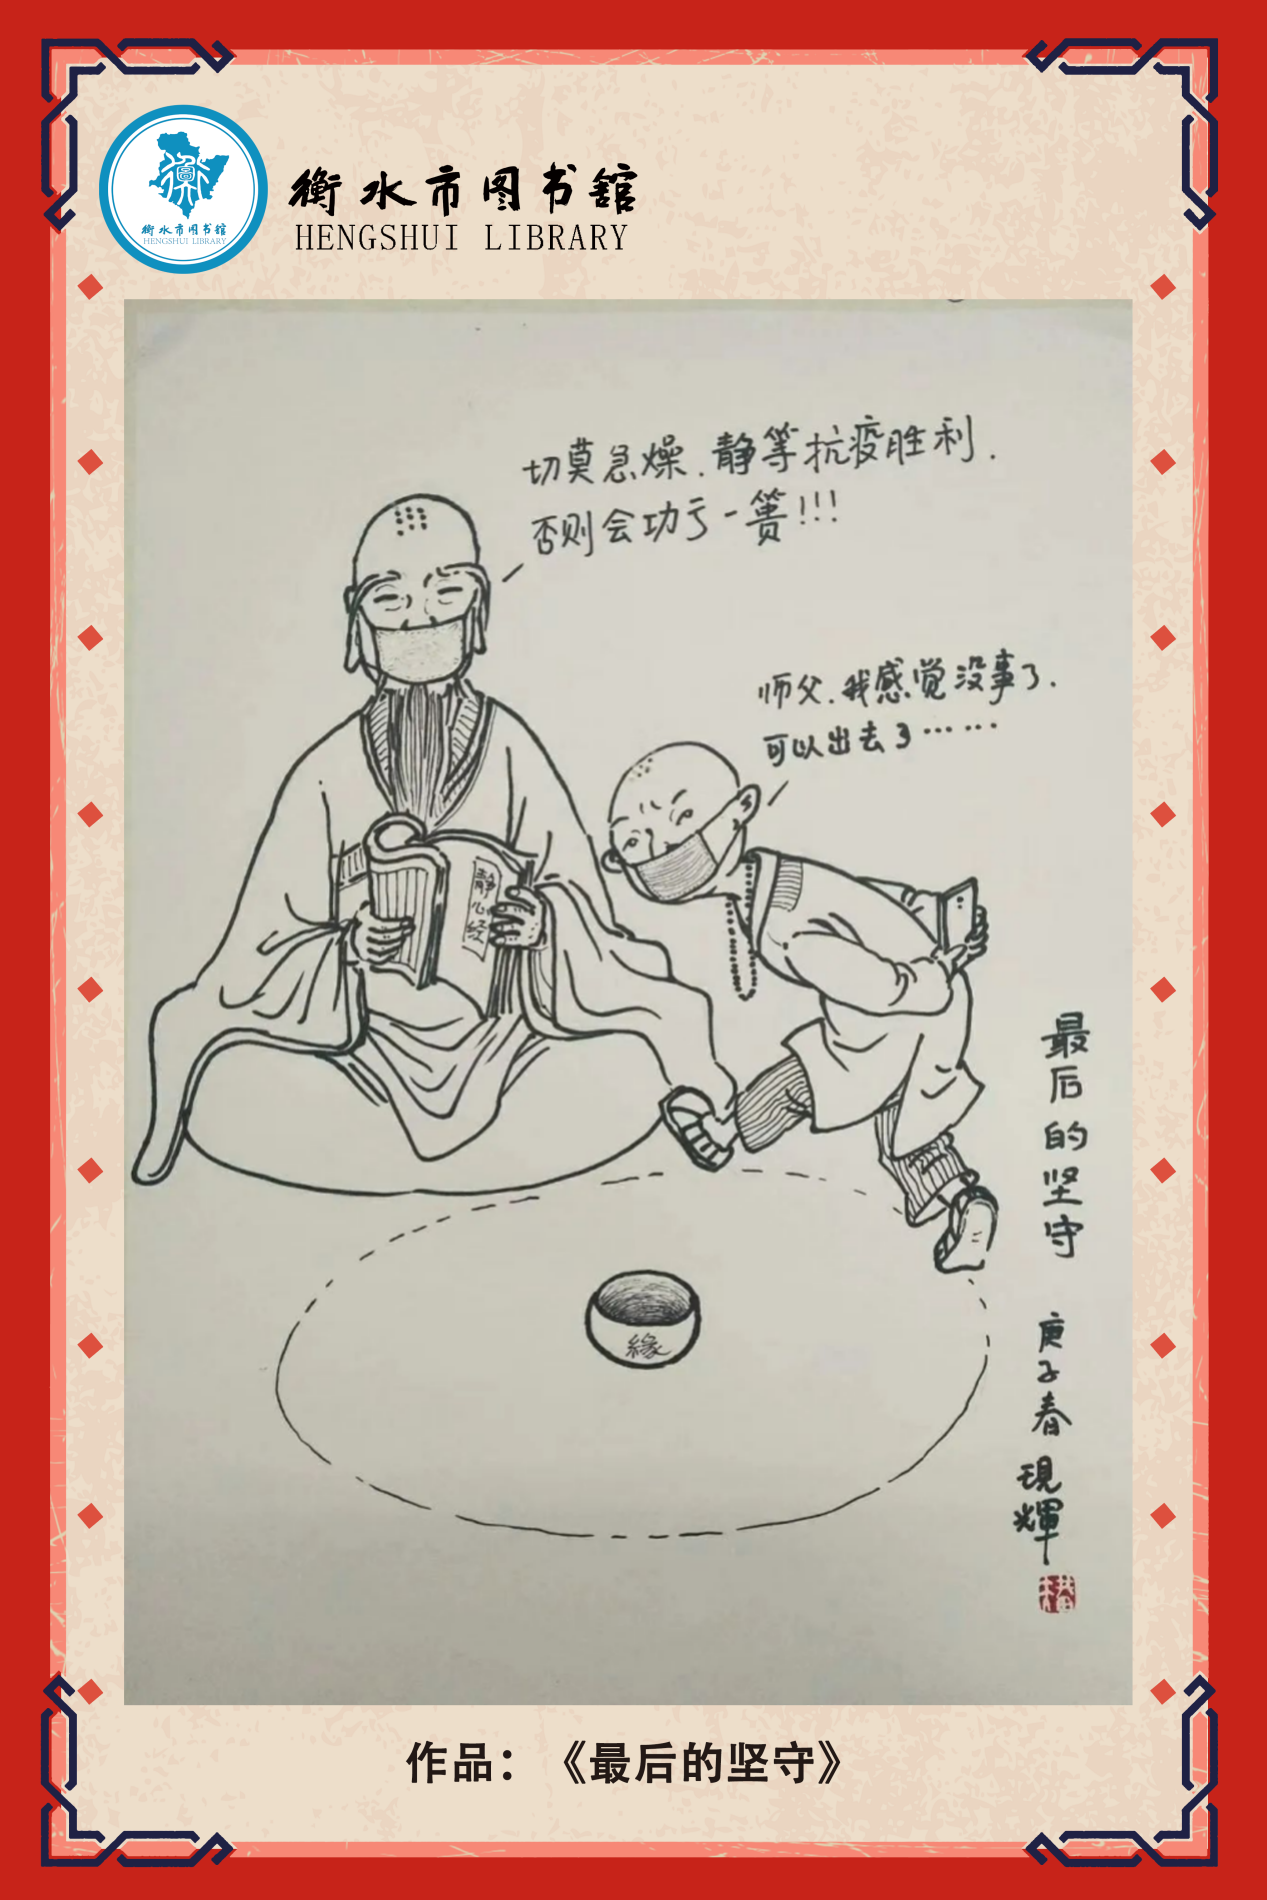 衡水市图书馆
HENGSHUI LIBRARY
衡水市图书馆
HENGSHUI LIBRARY
切莫急燥.静等抗疫胜利.
否则会功亏一篑!!!
师父.我感觉没事了.
可以出去了……
静心经
緣
最后的坚守
庚子春
現輝
作品：《最后的坚守》